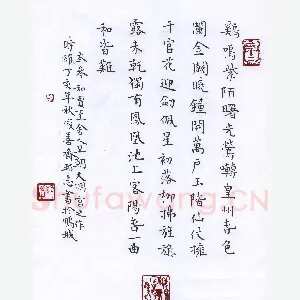 鷄鳴紫陌曙光鶯囀皇州春色
闌金闕曉鐘開萬戶玉階仙仗擁
千官花迎劍佩星初落柳拂旌旗
露未乾獨有鳳凰池上客陽春一曲
和皆難
岑參和賈至舍人早朝大明宮之作
時維丁亥年秋後善齋志書於鴨城